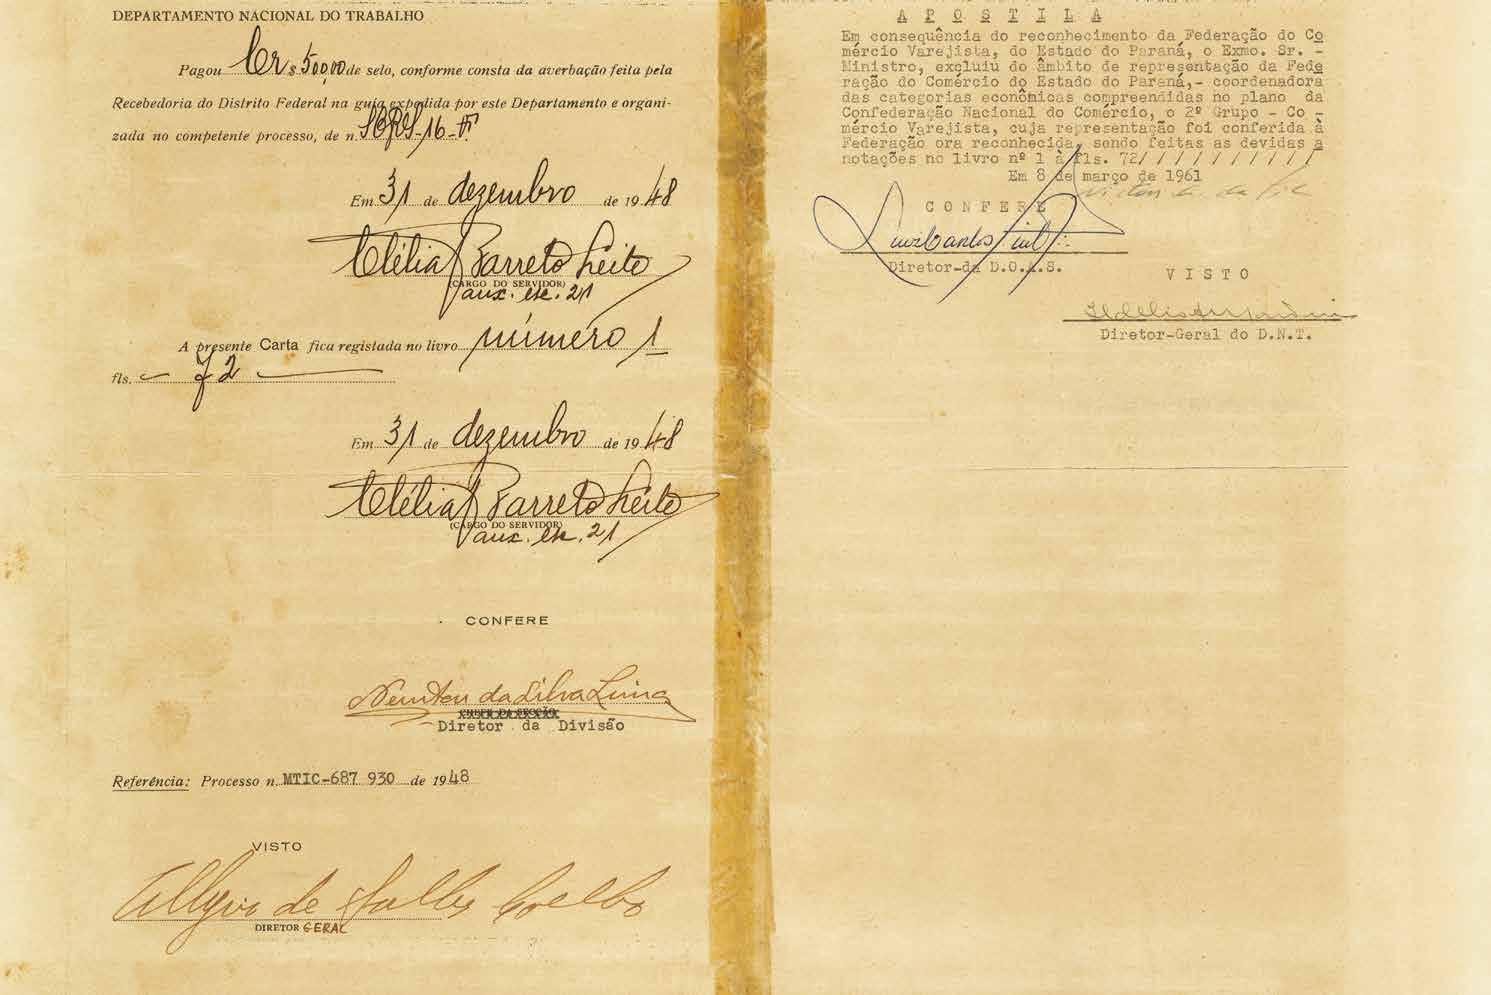 DEPARTAMENTO NACIONAL DO TRABALHO
Pagou Cr $ 500,00 de selo, conforme consta da averbação feita pela
Recebedoria do Distrito Federal na guia expedida por este Departamento e organi-
zada no competente processo, de n.
Em 31 de dezembro de 1948
Clélia Barreto Leite
(CARGO DO SERVIDOR)
aux. esc. 21
A presente Carta fica registada no livro número 1
fls. - 72
Em 31 de dezembro de 1948
Clélia Barreto Leite
(CARGO DO SERVIDOR)
aux. esc. 21
CONFERE
Newton da Silva Lima
CHEFE DA SECÇÃO
Diretor da Divisão
Referência: Processo n. MTIC-687 930 de 1948
VISTO
de Salles Coelho
DIRETOR GERAL
A P O S T I L A
Em consequência do reconhecimento da Federação do Co
mércio Varejista, do Estado do Paraná, o Exmo. Sr. -
Ministro, excluiu do âmbito de representação da Fede
ração do Comércio do Estado do Paraná,- coordenadora
das categorias econômicas compreendidas no plano da
Confederação Nacional do Comércio, o 2º Grupo - Co -
mércio Varejista, cuja representação foi conferida à
Federação ora reconhecida, sendo feitas as devidas a
notações no livro nº 1 à fls. 72/ / / / / / / / / / /
Em 8 de março de 1961
C O N F E R E
Diretor-da D.O.A.S.
V I S T O
Diretor-Geral do D.N.T.